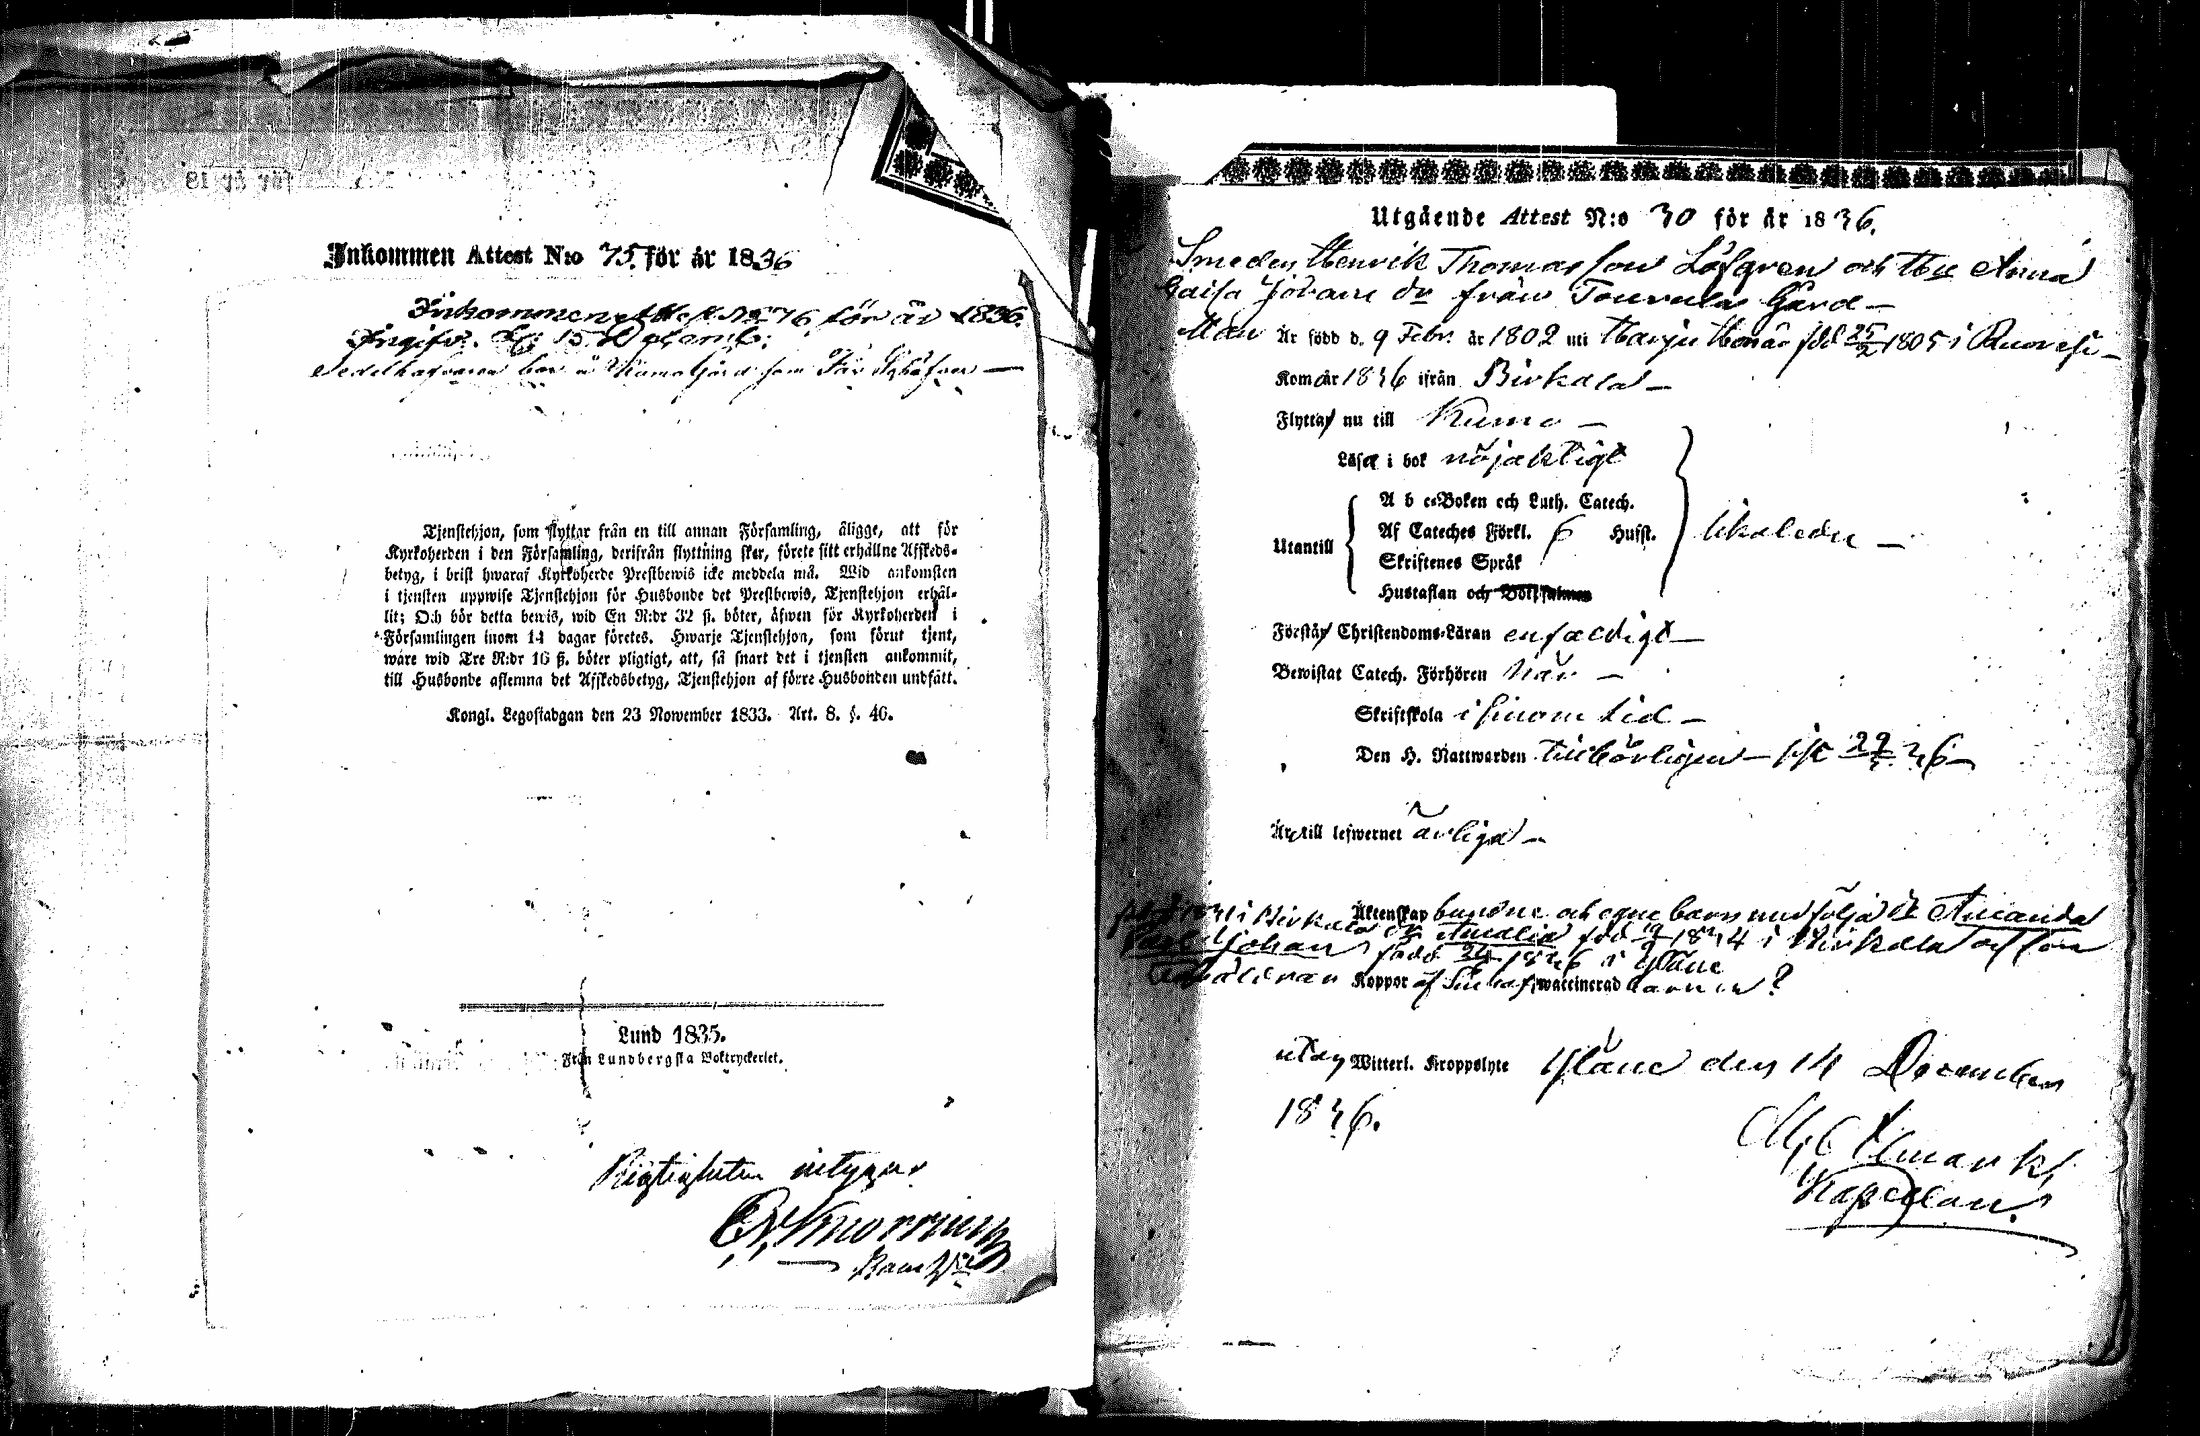 Inkommen Attest N:o 75 för år 1836
Inkommen Attest No 76 för år 1836.
Ingifv. d. 15 Decemb.
Sedelhafvaren bor å Kumo Gård som
Tjenstehjon, som flyttar från en till annan Församling, åligge, att för
Kyrkoherden i den Församling, derifrån flyttning sker, förete sitt erhållne Afskeds-
betyg, i brist hwaraf Kyrkoherde Prestbewis icke meddela må. Wid ankomsten
i tjensten uppwise Tjenstehjon för Husbonde det Prestbewis, Tjenstehjon erhål-
lit; Och bör detta bewis, wid En R:dr 32 ß. böter, äfwen för Kyrkoherden i
Församlingen inom 14 dagar företes. Hwarje Tjenstehjon, som förut tjent,
ware wid Tre R:dr 16 ß. böter pligtigt, att, så snart det i tjensten ankommit,
till Husbonde aflemna det Afskedsbetyg, Tjenstehjon af förre Husbonden undfått.
Kongl. Legostadgan den 23 November 1833. Art. 8. §. 46.
Lund 1835.
Från Lundbergska Boktryckeriet.
Rigtigheten intygar
Utgående Attest N:o 30 för år 1836.
Smeden Henrik Thomasson Löfgren och Hu Anna
Caisa Johans dr från Tourula Gård
Man Är född d. 9 Febr. år 1802 uti Harju Honär född 25/2 1805 i Ruovesi
Kom år 1836 ifrån Birkala
Flyttar nu till Kumo
Läser i bok nöjaktigt
Utantill
A b c-Boken och Luth. Catech.
Af Cateches Förkl. 6 Hufst.
Skriftenes Språk
Hustaflan och Bots-Psalmen
likaledes
Förstår Christendoms-Läran enfaldigt
Bewistat Catech. Förhören här
Skriftskola i sinom tid
Den H. Nattwarden tillbörligen sist 29 36
Är till lefwernet ärliga
1831 i Birkala Äktenskap bundne och egne barn medfölja Dr Amanda
dr Amalia född 1834 i Birkala och son
Carl Johan född 24 1836 i Yläne
Koppor waccinerad barnen?
utan Witterl. Kroppslyte Yläne den 14 December
1836.
Kapellan.